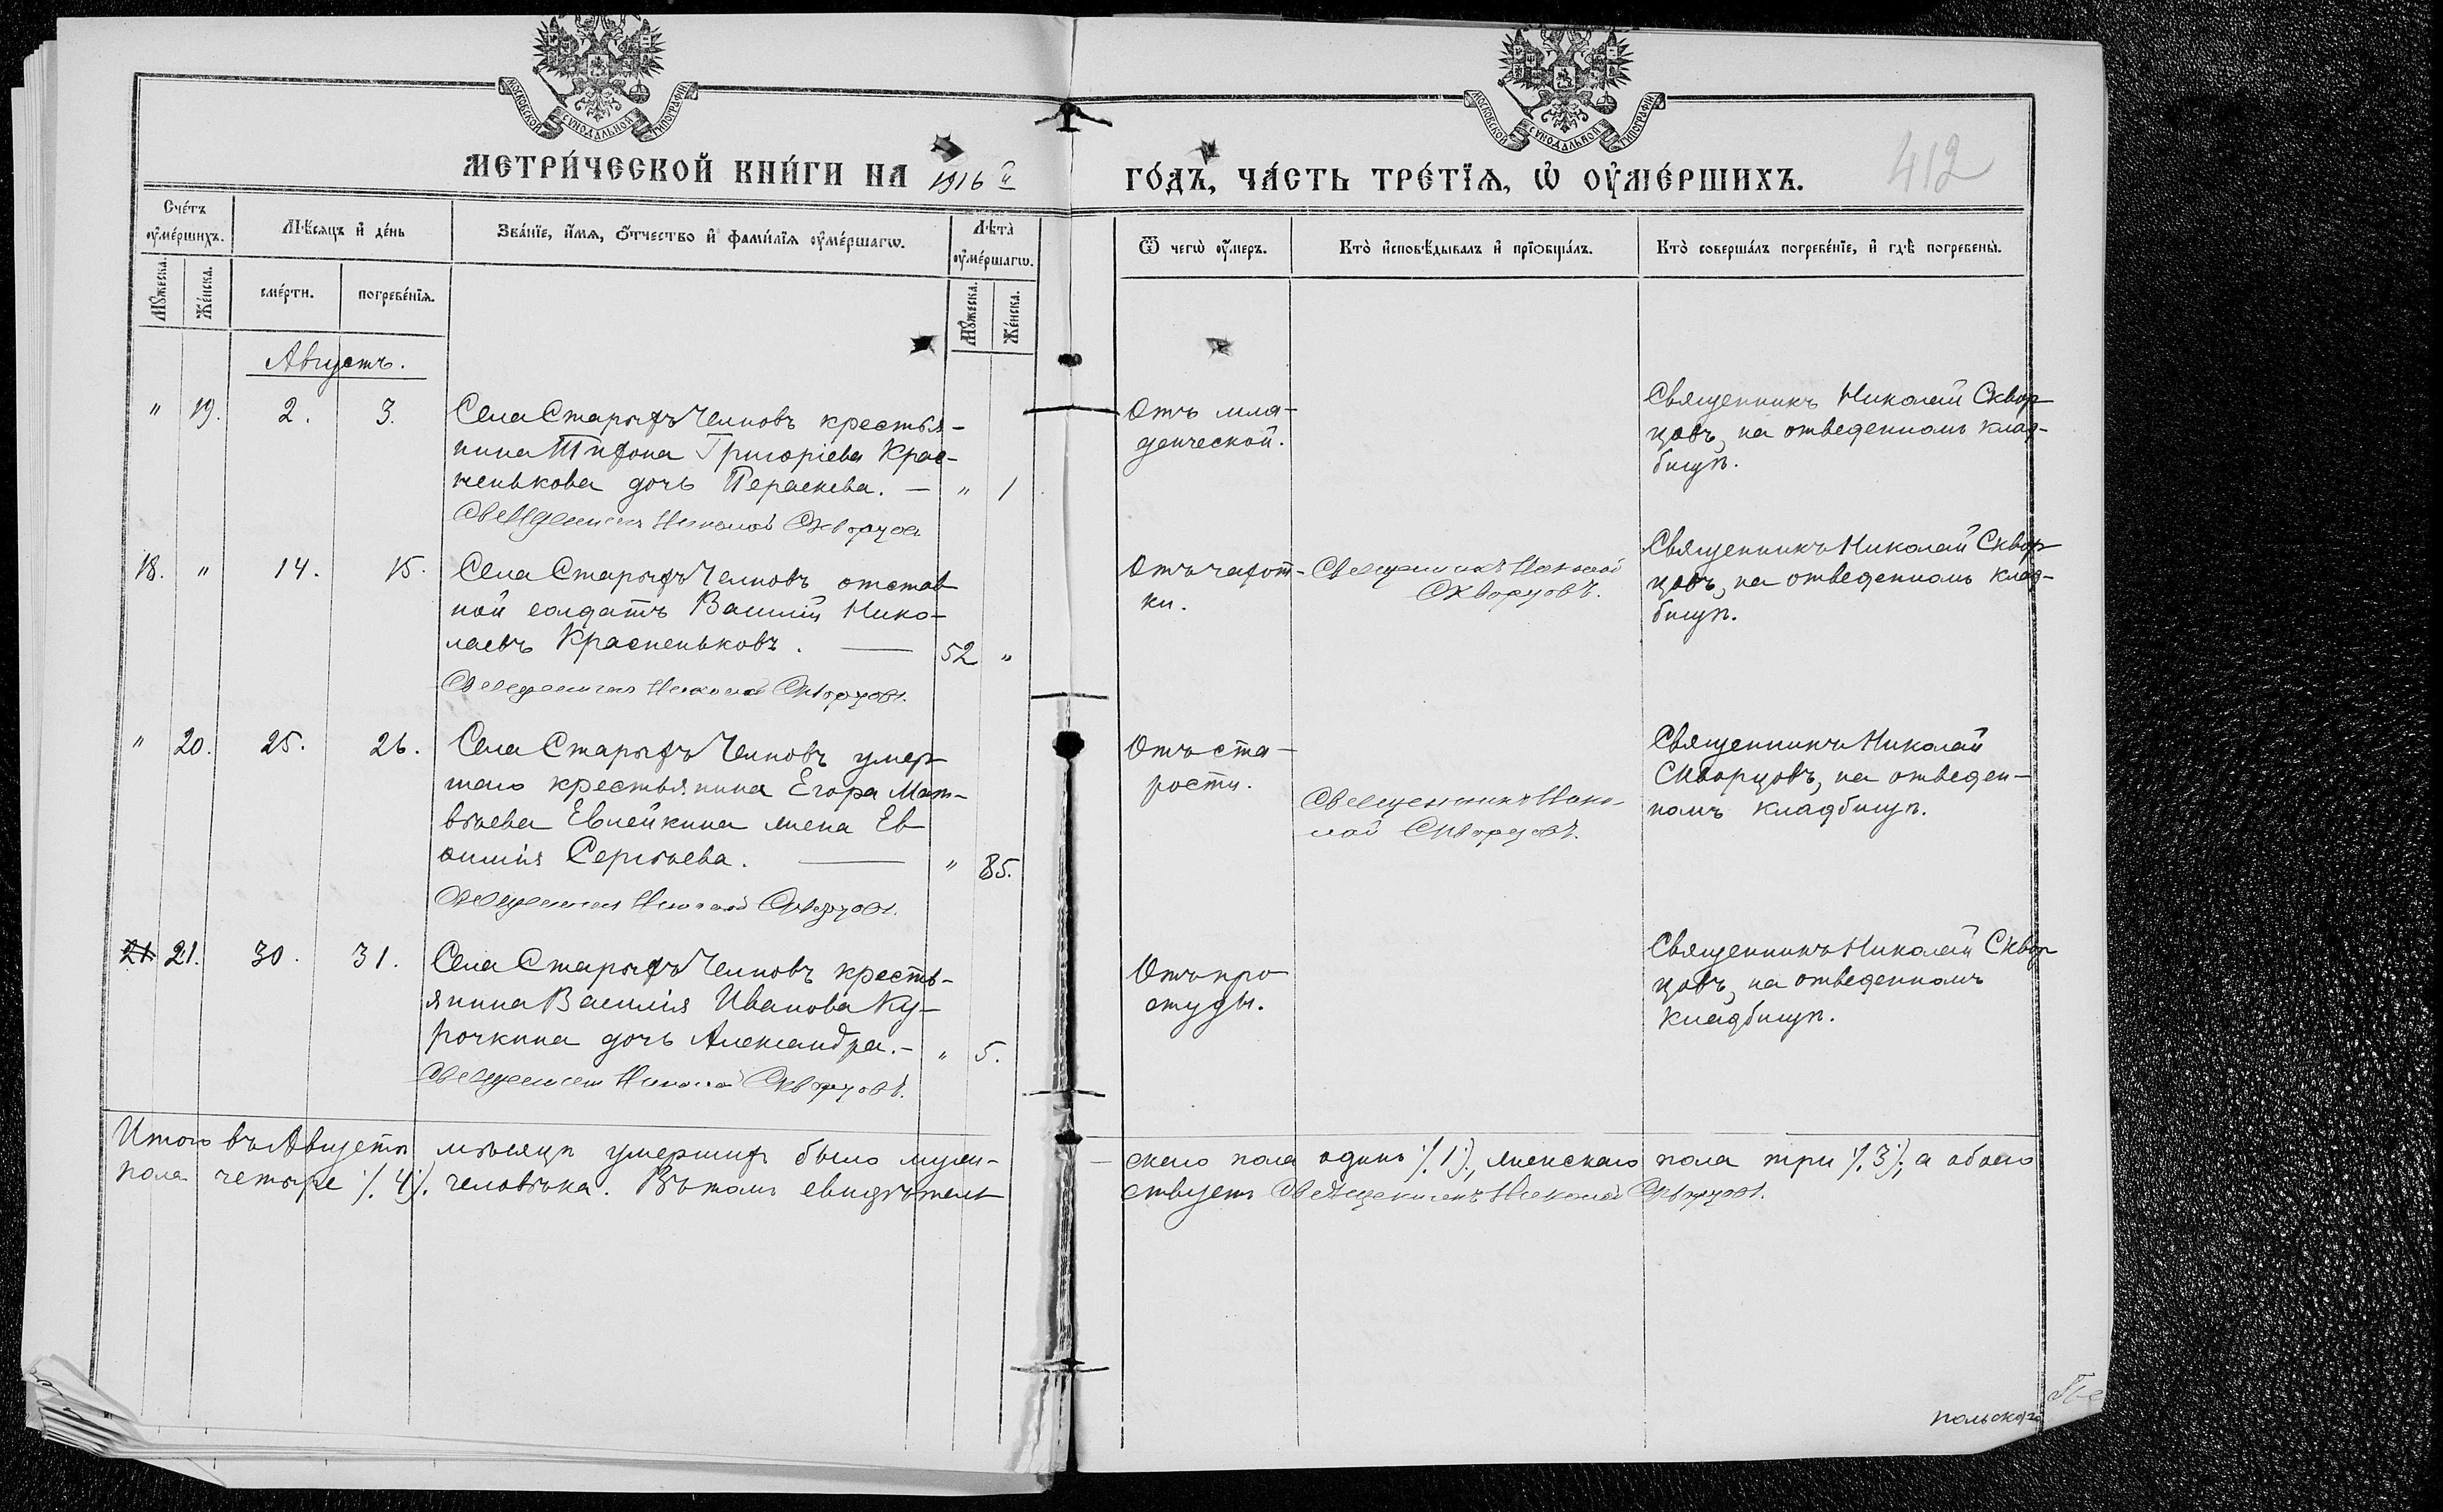 МОСКОВСКОЙ СУНОДАЛЬНОЙ ТИПОГРАФІИ
МОСКОВСКОЙ СУНОДАЛЬНОЙ ТИПОГРАФІИ
МЕТРИ́ЧЕСКОЙ КНИ́ГИ НА 1916 й
ГО́ДЪ, ЧА́СТЬ ТРЕ́ТІѦ, Ѡ ОУ҆МЕ́РШИХЪ.
412
Сче́тъ оу҆ме́ршихъ.
Мѣ́сяцъ и҆ де́нь
Зва́нїе, и҆́мѧ, ѻ҆́тчество и҆ фами́лїѧ оу҆ме́ршагѡ.
Лѣта̀ оу҆ме́ршагѡ.
Ѿ чегѡ̀ оу҆́меръ.
Кто̀ и҆сповѣ́дывалъ и҆ прїѡбща́лъ.
Кто̀ соверша́лъ погребе́нїе, и҆ гдѣ̀ погребены̀.
Мꙋ́жеска.
Же́нска.
сме́рти.
погребе́нїѧ.
Мꙋ́жеска.
Же́нска.
Августъ.
" 19. 2. 3.
Села Старыхъ Челновъ крестья-
нина Тифона Григоріева Крас-
ненькова дочь Параскева. — " 1
Священникъ Николай Скворцовъ
Отъ мла-
денческой.
Священникъ Николай Сквор
цовъ, на отведенномъ клад-
бищѣ.
18. " 14. 15.
Села Старыхъ Челновъ отстав
ной солдатъ Василій Нико-
лаевъ Красненьковъ. — 52 "
Священникъ Николай Скворцовъ.
Отъ чахот-
ки.
Священникъ Николай
Скворцовъ.
Священникъ Николай Сквор
цовъ, на отведенномъ клад-
бищѣ.
" 20. 25. 26.
Села Старыхъ Челновъ умер
шаго крестьянина Егора Мат-
вѣева Евлейкина жена Ев
фимія Сергѣева. — " 85.
Священникъ Николай Скворцовъ.
Отъ ста-
рости.
Священникъ Нико-
лай Скворцовъ.
Священникъ Николай
Скворцовъ, на отведен-
номъ кладбищѣ.
21 21. 30. 31.
Села Старыхъ Челновъ кресть-
янина Василія Иванова Ку-
рочкина дочь Александра. - " 5.
Священникъ Николай Скворцовъ.
Отъ про
студы.
Священникъ Николай Сквор
цовъ, на отведенномъ
кладбищѣ.
Итого въ Августѣ мѣсяцѣ умершихъ было муже-
скаго пола одинъ /.1/., женскаго пола три /.3/., а обоего
пола четыре /.4/. человѣка. Въ томъ свидѣтель
ствуетъ Священникъ Николай Скворцовъ.